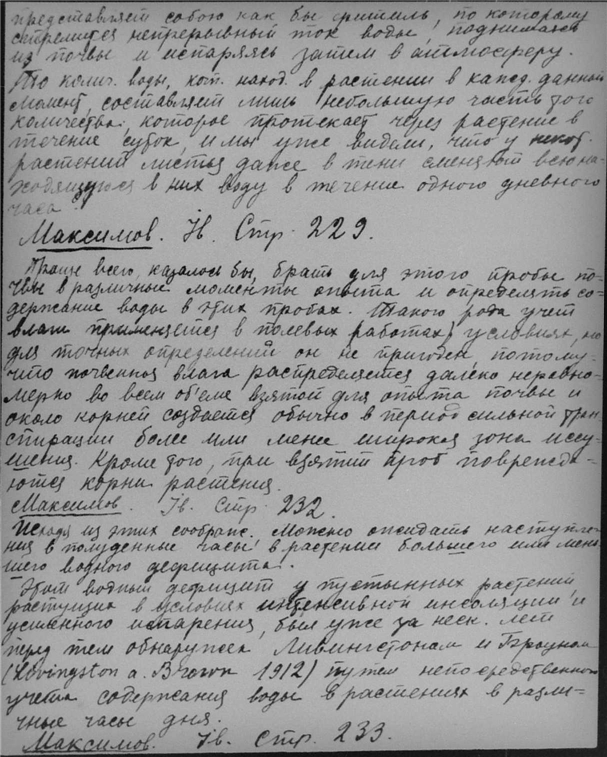 представляет собою как бы фитиль, по которому
стремится непрерывный ток воды, поднимаясь
из почвы и испаряясь затем в атмосферу.
То колич. воды, кот. наход. в растении в кажд. данный
момент, составляет лишь небольшую часть того
количества, которое протекает через растение в
течение суток, и мы уже видели, что у некот.
растений листья даже в тени сменяют всю на-
ходящуюся в них воду в течение одного дневного
часа
Максимов. Iв. Стр. 229.
Проще всего, казалось бы, брать для этого пробы по-
чвы в различные моменты опыта и определять со-
держание воды в этих пробах. Такого рода учет
влаги применяется в полевых работах, условиях, но
для точных определений он не пригоден потому,
что почвенная влага распределяется далеко неравно-
мерно во всем об'еме взятой для опыта почвы и
около корней создается обычно в период сильной тран
спирации более или менее широкая зона иссу-
шения. Кроме того, при взятии проб поврежда-
ются корни растения.
Максимов. Iв. Стр. 232.
Исходя из этих соображ. можно ожидать наступле-
ния в полуденные часы в растении большего или мень
шего водного дефицита.
Этот водный дефицит у пустынных растений,
растущих в условиях интенсивной инсоляции и
усиленного испарения, был уже за неск. лет
перед тем обнаружен Ливингстоном и Броуном
(Livingston a. Brown 1912) путем непосредственного
учета содержания воды в растениях в разли-
чные часы дня.
Максимов. Iв. Стр. 233.